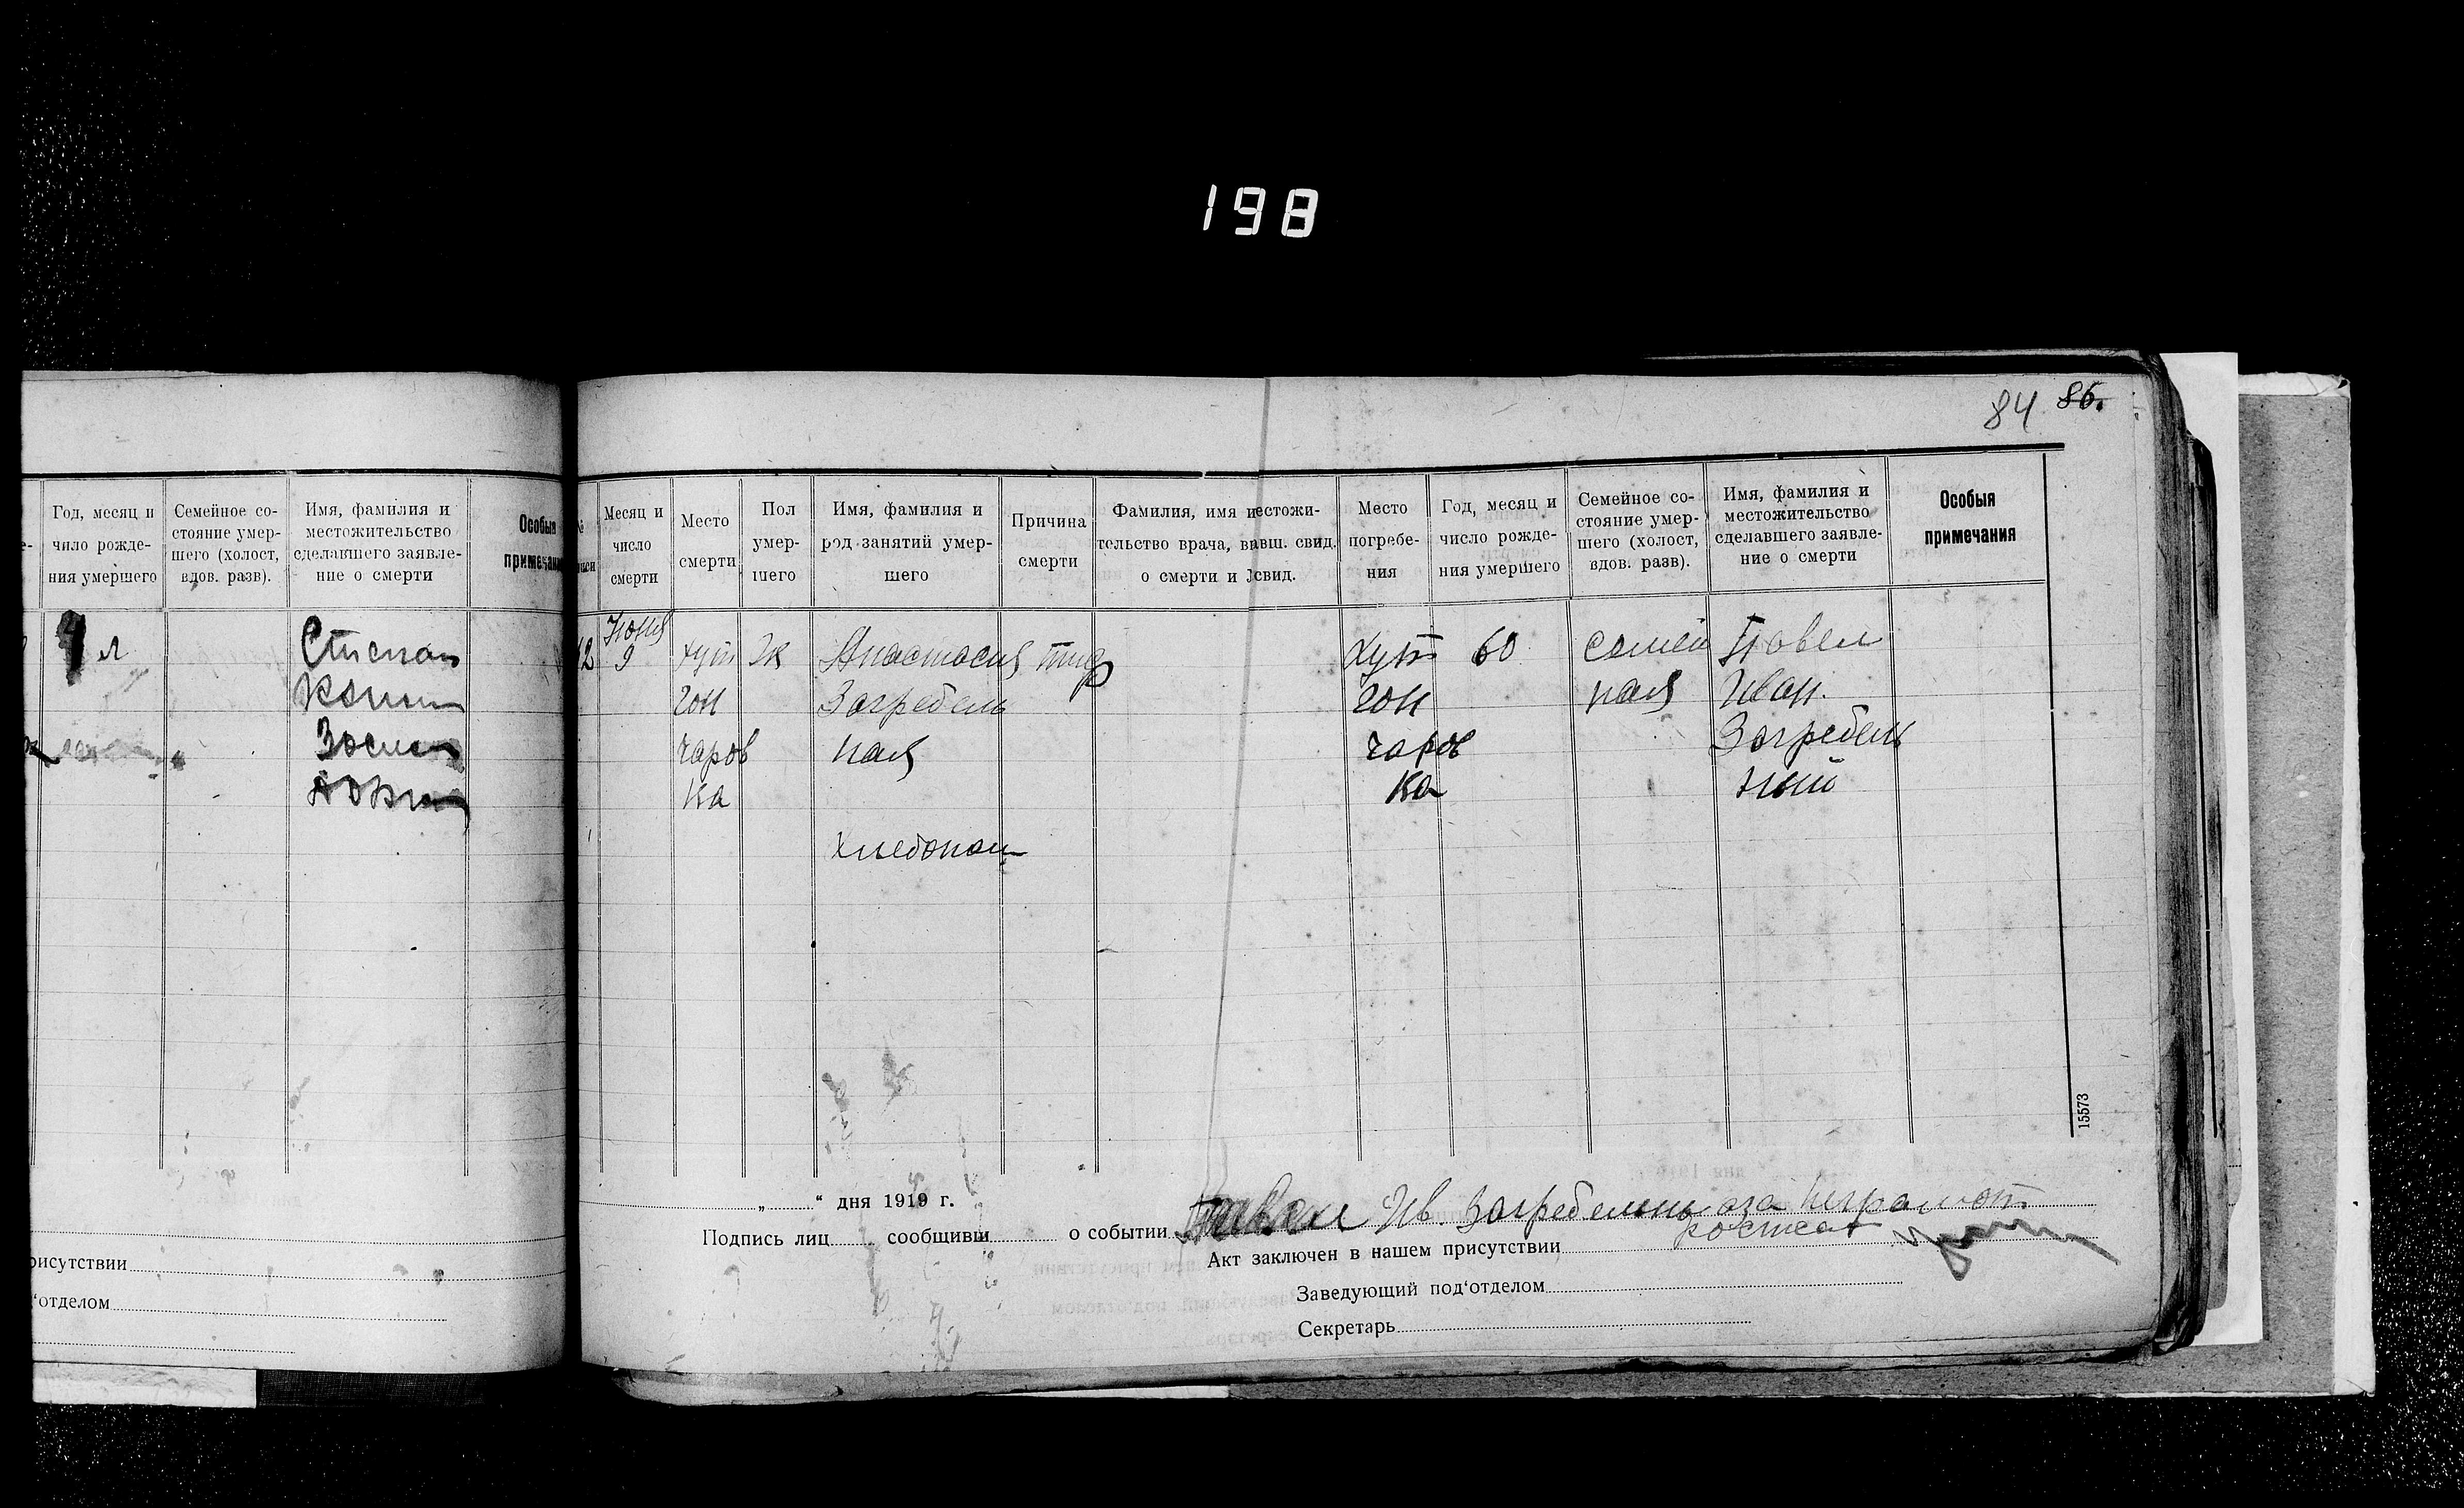 198
84 86.
Год, месяц и число рождения умершего
Семейное состояние умершего (холост, вдов. разв).
Имя, фамилия и местожительство сделавшего заявление о смерти
Особыя
4 л
Степан
рисутствии
'отделом
Месяц и число смерти
Место смерти
Пол умершего
Имя, фамилия и род занятий умершего
Причина смерти
Фамилия, имя и
о смерти и
Место погребения
Год, месяц и число рождения умершего
Семейное состояние умершего (холост, вдов. разв).
Имя, фамилия и местожительство сделавшего заявление о смерти
Особыя примечания
12
Июня 9
хут
Гон
чаров
ка
Ж
Анастасия
Загребель
ная
Хлебопаш
тиф
Хут
Гон
чаров
ка
60
семей
ная
Павел
Иван.
Загребель
ный
15573
„ “ дня 1919 г.
Подпись лиц сообщивш о событии Павел Ив. Загребельны аза неграмот
Акт заключен в нашем присутствии
Заведующий под‘отделом
Секретарь